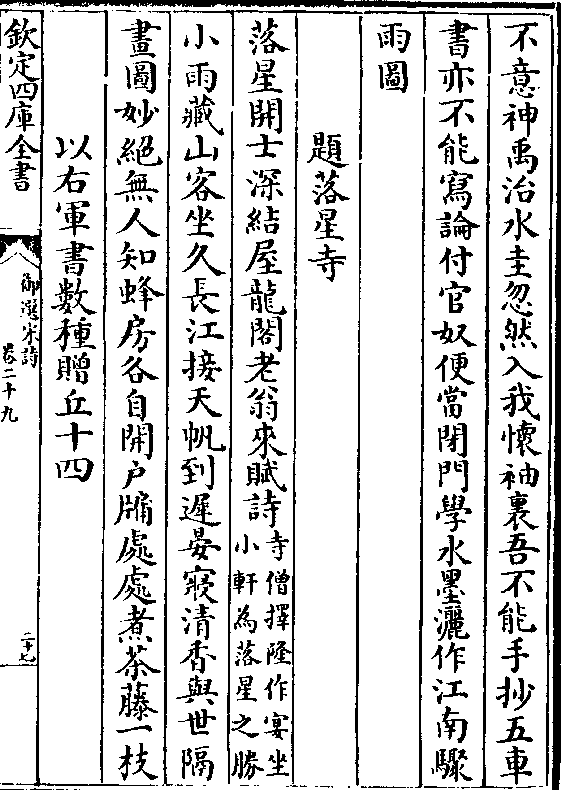 不意神禹治水圭忽然入我懷袖裏吾不能手抄五車
書亦不能寫論付官奴便當閉門學水墨灑作江南驟
雨圖
題落星寺
落星開士深結屋龍閣老翁來賦詩寺僧擇隆作宴坐
小軒為落星之勝
小雨藏山客坐久長江接天帆到遲晏寢清香與世隔
畫圖妙絕無人知蜂房各自開户牖處處煮茶藤一枝
以右軍書數種贈丘十四
欽定四庫全書
御選宋詩
卷二十九
二十七